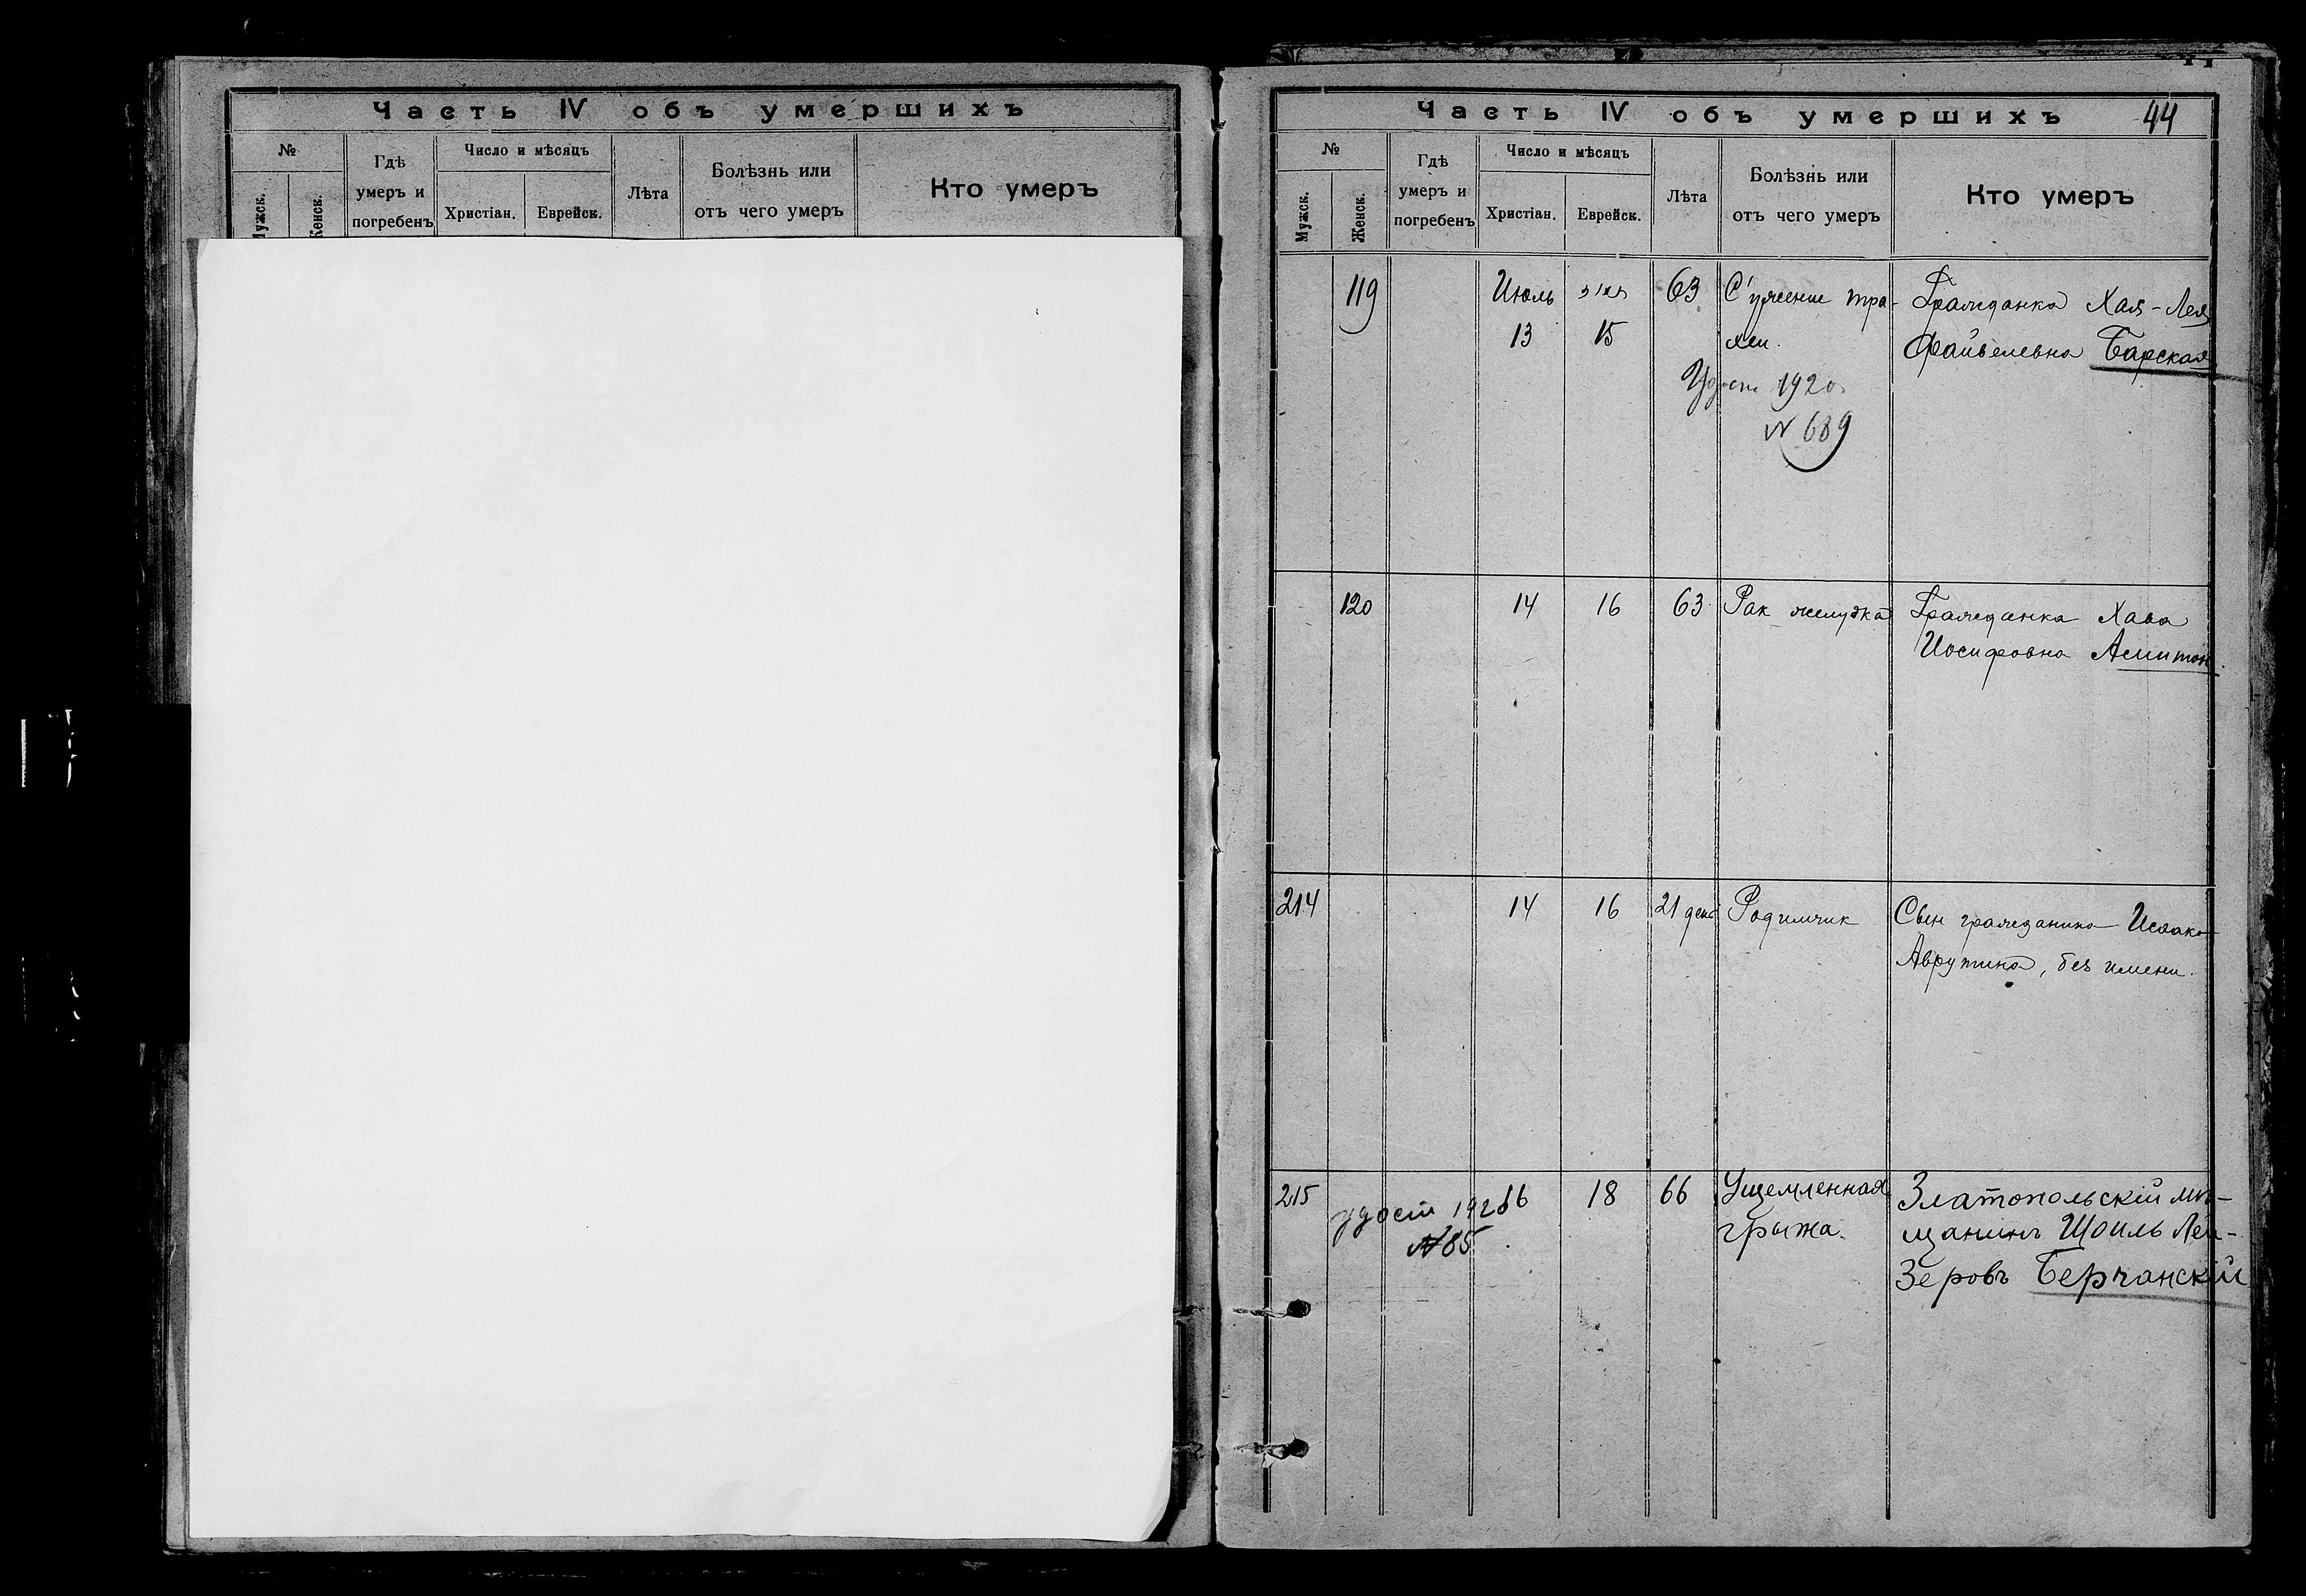 Часть IV объ умершихъ
№
Мужск.
Женск.
Гдѣ
умеръ и
погребенъ
Число и мѣсяцъ
Христіан.
Еврейск.
Лѣта
Болѣзнь или
отъ чего умеръ
Кто умеръ
Часть IV объ умершихъ 44
№
Мужск.
Женск.
Гдѣ
умеръ и
погребенъ
Число и мѣсяцъ
Христіан.
Еврейск.
Лѣта
Болѣзнь или
отъ чего умеръ
Кто умеръ
119 Июль 63 Сужение тра- Гражданка Хая-Лея
13 15 хеи. Файвелевна Барская
1920
N 689
120 14 16 63 Рак желудка Гражданка Хава
Иосифовна
214 14 16 21 день Родимчик Сын гражданина Исаака
Аврутина, без имени.
215 18 66 Ущемленная Златопольскій мѣ-
удост
№85 грыжа. щанинъ Шоиль Лей-
зеровъ Берчанскій